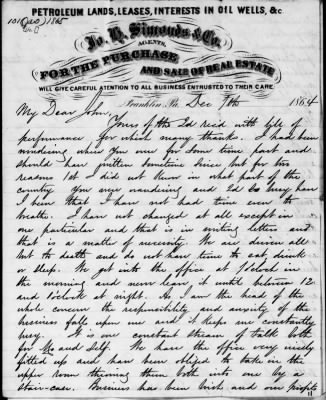 PETROLEUM LANDS, LEASES, INTERESTS IN OIL WELLS, &c.
Jo. H. Simonds & Co.
AGENTS,
FOR THE PURCHASE
AND SALE OF REAL ESTATE
WILL GIVE CAREFUL ATTENTION TO ALL BUSINESS ENTRUSTED TO THEIR CARE.
Franklin, Pa. Dec 7th 1864
My Dear John,
Yours of the 2d recd with bill of
performance for which many thanks. I have been
wondering where you were for some time past and
should have written sometime since but for two
reasons 1st I did not know in what part of the
country you were wandering and 2d So busy have
I been that I have not had time even to
breathe. I have not changed at all except in
one particular and that is in writing letters and
that is a matter of necessity. We are driven all
but to death and do not have time to eat, drink
or sleep. We get into the office at 7 o'clock in
the morning and never leave it until between 12
and 1 o'clock at night. As I am the head of the
whole concern the responsibility and anxiety of the
business falls upon me and it keeps me constantly
busy. It is one constant stream of talk both
for Mc and self. We have the office very nicely
fitted up and have been obliged to take in the
upper room throwing them both into one by a
stair-case. Business has been brisk and our profits